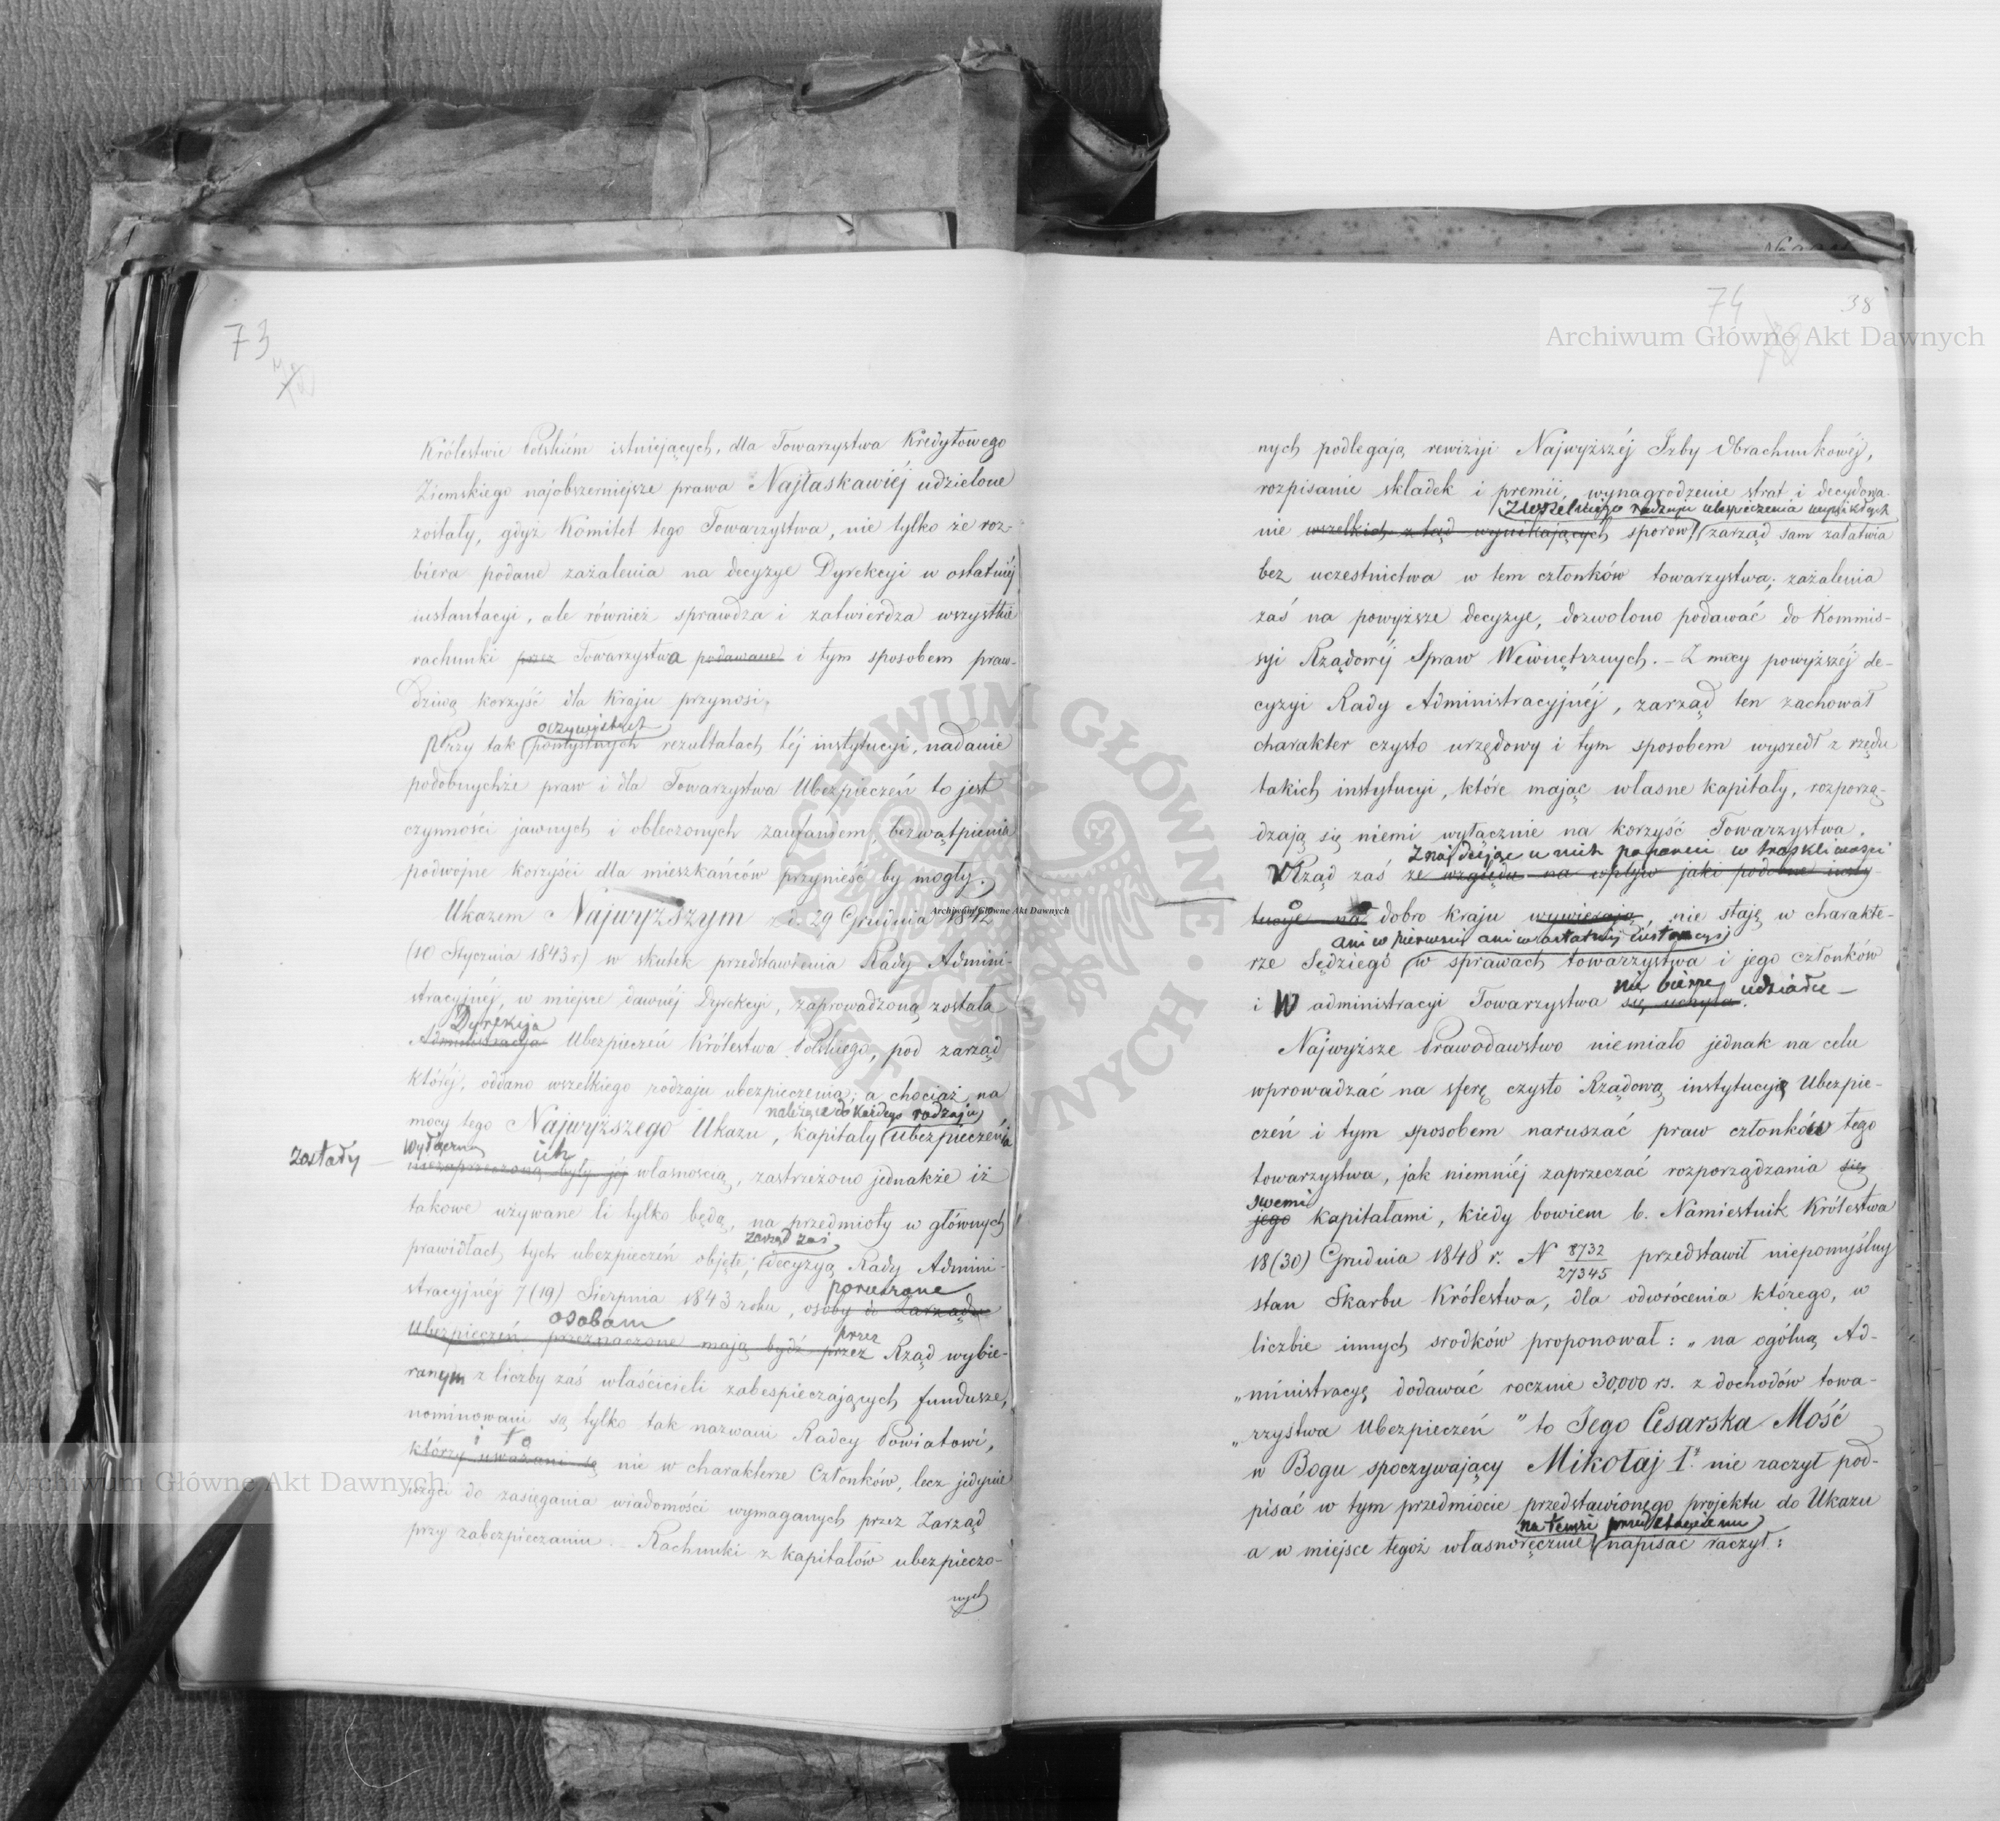 73
Królestwie Polskiém istniejących, dla Towarzystwa Kredytowego
Ziemskiego najobszerniejsze prawa Najłaskawiéj udzielone
zostały, gdyż Komitet tego Towarzystwa, nie tylko że roz-
biera podane zażalenia na decyzye Dyrekcyi w ostatniéj
instantacyi, ale również sprawdza i zatwierdza wszystkie
rachunki przez Towarzystwa podawane i tym sposobem praw-
dziwą korzyść dla Kraju przynosi.
oczywistych
Przy tak pomyślnych rezultatach téj instytucyi, nadanie
podobnychże praw i dla Towarzystwa Ubezpieczeń to jest
czynności jawnych i obleczonych zaufaniem, bezwątpienia
podwójne korzyści dla mieszkańców przynieść by mogły.
Ukazem Najwyższym z d. 29 Grudnia 1842
(10 Stycznia 1843 r) w skutek przedstawienia Rady Admini-
stracyjnéj, w miejsce dawnéj Dyrekcyi, zaprowadzoną została
Dyrekcja
Administracja Ubezpieczeń Królestwa Polskiego, pod zarząd
któréj, oddano wszelkiego rodzaju ubezpieczenia; a chociaż na
należące do każdego rodzaju
mocy tego Najwyższego Ukazu, kapitały ubezpieczenia
zostały — wyłączną ich
niezaprzeczoną były jéj własnością, zastrzeżono jednakże iż
takowe używane li tylko będą, na przedmioty w głównych
zarząd zaś
prawidłach tych ubezpieczeń objęte; decyzyą Rady Admini-
poruczone
stracyjnéj 7 (19) Sierpnia 1843 roku, osoby do Zarządu
osobom przez
Ubezpieczeń przeznaczone mają bydź przez Rząd wybie-
ranym z liczby zaś właścicieli zabespieczających fundusze,
nominowani są tylko tak nazwani Radcy Powiatowi,
i to
którzy uważani są nie w charakterze Członków, lecz jedynie
użyci do zasięgania wiadomości wymaganych przez Zarząd
przy zabezpieczaniu. Rachunki z kapitałów ubezpieczo-
nych
74 38
nych podlegają rewizyi Najwyższéj Izby Obrachunkowéj,
rozpisanie składek i premii, wynagrodzenie strat i decydowa-
z wszelkiego rodzaju ubezpieczenia wynikłych
nie wszelkich z tąd wynikających sporów zarząd sam załatwia
bez uczestnictwa w tem członków towarzystwa; zażalenia
zaś na powyższe decyzye, dozwolono podawać do Kommis-
syi Rządowéj Spraw Wewnętrznych. – Z mocy powyższéj de-
cyzyi Rady Administracyjnéj, zarząd ten zachował
charakter czysto urzędowy i tym sposobem wyszedł z rzędu
takich instytucyi, które mając własne kapitały, rozporzą-
dzają się niemi wyłącznie na korzyść Towarzystwa.
znajdując w nich w troskliwości
Rząd zaś ze względu na wpływ jaki podobne insty-
tucyje na dobro kraju wywierają, nie staje w charakte-
ani w pierwszéj ani w ostatniéj instancyi
rze Sędziego w sprawach towarzystwa i jego członków
nie bierze udziału –
i w administracyi Towarzystwa się uchyla.
Najwyższe Prawodawstwo niemiało jednak na celu
wprowadzać na sferę czysto Rządową instytucyię Ubezpie-
czeń i tym sposobem naruszać praw członków tego
towarzystwa, jak niemniéj zaprzeczać rozporządzania się
swemi
jego kapitałami, kiedy bowiem b. Namiestnik Królestwa
18 (30) Grudnia 1848 r. N 8732/27345 przedstawił niepomyślny
stan Skarbu Królestwa, dla odwrócenia którego, w
liczbie innych srodków proponował: „na ogólną Ad-
„ministracyę dodawać rocznie 30,000 rs. z dochodów towa-
„rzystwa Ubezpieczeń" to Jego Cesarska Mość
w Bogu spoczywający Mikołaj I. nie raczył pod-
pisać w tym przedmiocie przedstawionego projektu do Ukazu
na temże przedstawieniu
a w miejsce tegoż własnoręcznie napisać raczył:
Archiwum Główne Akt Dawnych
Archiwum Główne Akt Dawnych
Archiwum Główne Akt Dawnych
ARCHIWUM GŁÓWNE AKT DAWNYCH